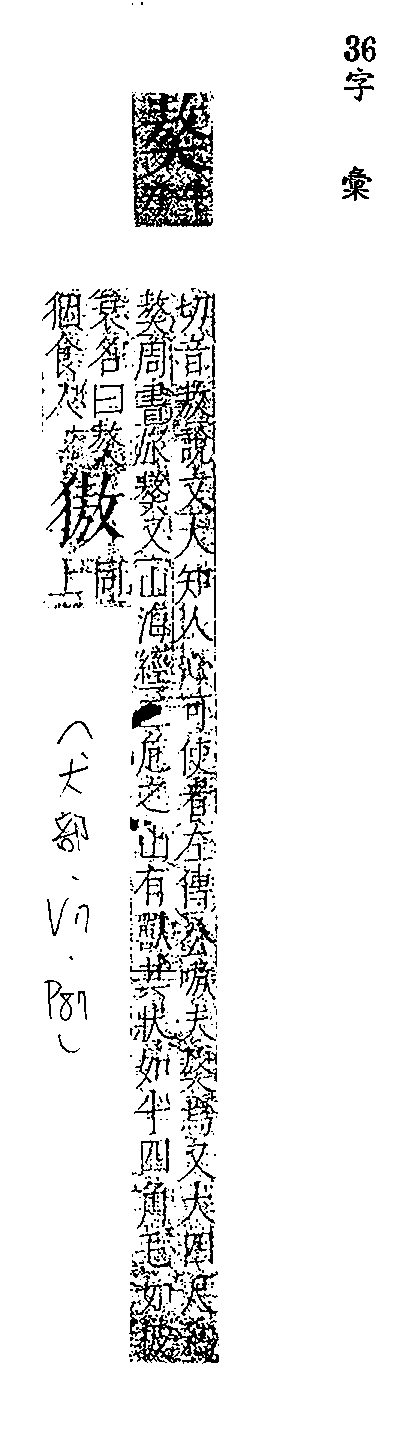 36
字彙
獒
切音敖說文犬知人心可使者左傳公嗾夫獒焉又犬四尺爲
獒周書旅獒又山海經三危之山有獸其狀如牛四角毛如披
蓑名曰獒
個食人
獓
同
上
(犬部.V7.P87)